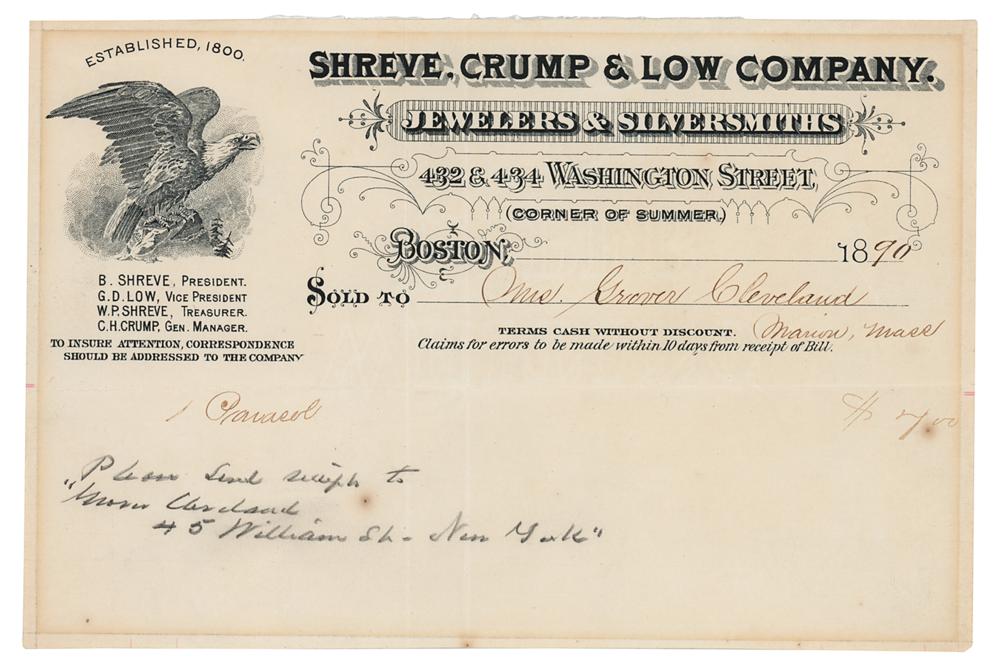 ESTABLISHED, 1800.
SHREVE, CRUMP & LOW COMPANY.
JEWELERS & SILVERSMITHS
432 & 434 WASHINGTON STREET,
(CORNER OF SUMMER,)
BOSTON, 1890
B. SHREVE, PRESIDENT.
G.D. LOW, VICE PRESIDENT
W.P. SHREVE, TREASURER.
C.H. CRUMP, GEN. MANAGER.
TO INSURE ATTENTION, CORRESPONDENCE
SHOULD BE ADDRESSED TO THE COMPANY
SOLD TO Mrs. Grover Cleveland
Marion, Mass
TERMS CASH WITHOUT DISCOUNT.
Claims for errors to be made within 10 days from receipt of Bill.
1 Parasol $ 7 00
Please send receipt to
"Grover Cleveland
45 William St - New York"